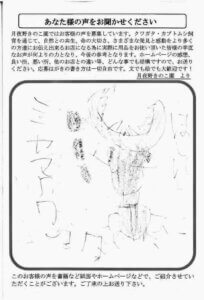 あなた様の声をお聞かせください
月夜野きのこ園ではお客様の声を募集しています。クワガタ・カブトムシ飼
育を通じて、自然との共生、命の大切さ、さまざまな発見と感動をより多く
の方達にお伝え出来るお店になる為に実際に用品をお使い頂いた皆様の率直
なお声が何よりの力となり、今後の参考となります。ホームページの感想、
良い所、悪い所、他のお店との違い等、どんな事でも結構ですので、お送り
ください。応募はがきの書き方は一切自由です。文でも絵でも大歓迎です！
月夜野きのこ園 より
ミヤマクワガタ
このお客様の声を書籍など紙面やホームページなどで、ご紹介させていた
だくことがございます。ご了承の上お送り下さい。